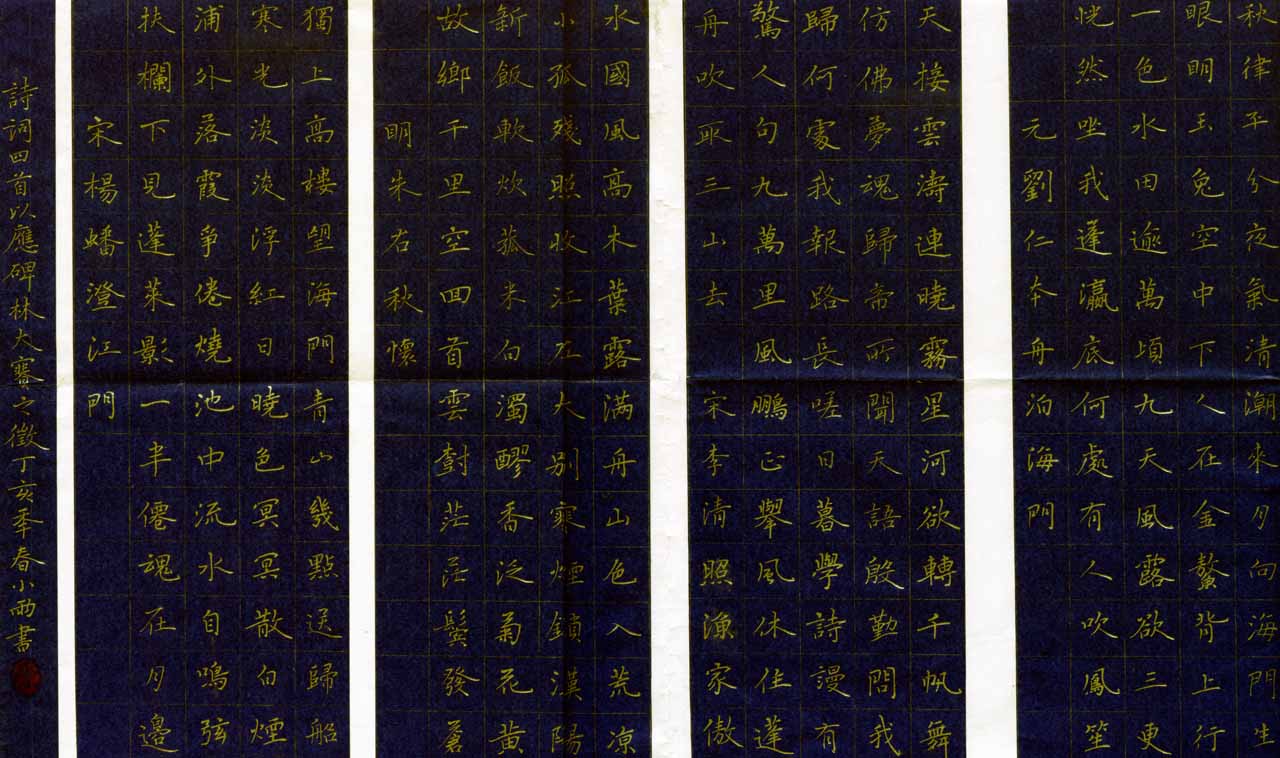 秋律平分夜氣清潮來月向海門生
眼明玉兔空中下人在金鰲背上行
一色水田逾萬頃九天風露欲三更
恍然坐我蓬瀛底何處有人吹鳳笙
元劉仁本舟泊海門
天接雲濤連曉霧星河欲轉千帆舞
仿佛夢魂歸帝所聞天語殷勤問我
歸何處我報路長嗟日暮學詩謾有
驚人句九萬里風鵬正舉風休住蓬
舟吹取三山去宋李清照漁家傲
水國風高木葉露滿舟山色入荒凉
小孤殘照收江左大別寒煙鎖漢陽
新飯軟炊菰米白濁醪香泛菊花黃
故鄉千里空回首雲樹茫茫鬢發蒼
明朱右秋懷
獨上高樓望海門青山幾點送歸船
寒光淡淡浮紅日曉色冥冥散白煙
浦外落霞爭倦燒池中流水自鳴弦
扶欄下見蓬萊影一半僊魂在月邊
宋楊蟠澄江門
詩詞四首以應碑林大賽之徵丁亥季春小雨書